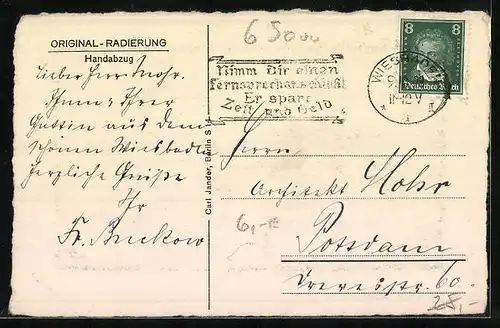 6 5000
ORIGINAL-RADIERUNG
Handabzug
Nimm Dir einen
Fernsprechanschluß
Er spart
Zeit und Geld
WIESBADEN
11-12 V
8 8
Deutsches Reich
Lieber Herr Mohr.
Ihnen u. Ihrer
Gattin aus dem
schönen Wiesbaden
herzliche Grüße
Ihr
Fr. Buckow
Carl Jander, Berlin S 14
Herrn
Architekt Mohr
6,-
Potsdam
60
28,-